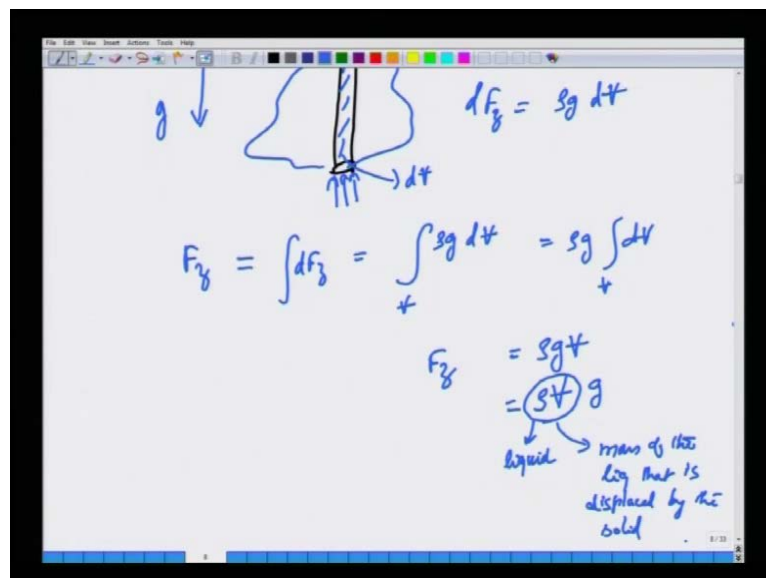 File Edit View Insert Actions Tools Help
B I
g
dF_z = ρg dV
dV
F_z = ∫dF_z = ∫_V ρg dV = ρg ∫_V dV
F_z = ρgV
= ρV g
liquid
mass of the
liq that is
displaced by the
solid
8/33
8